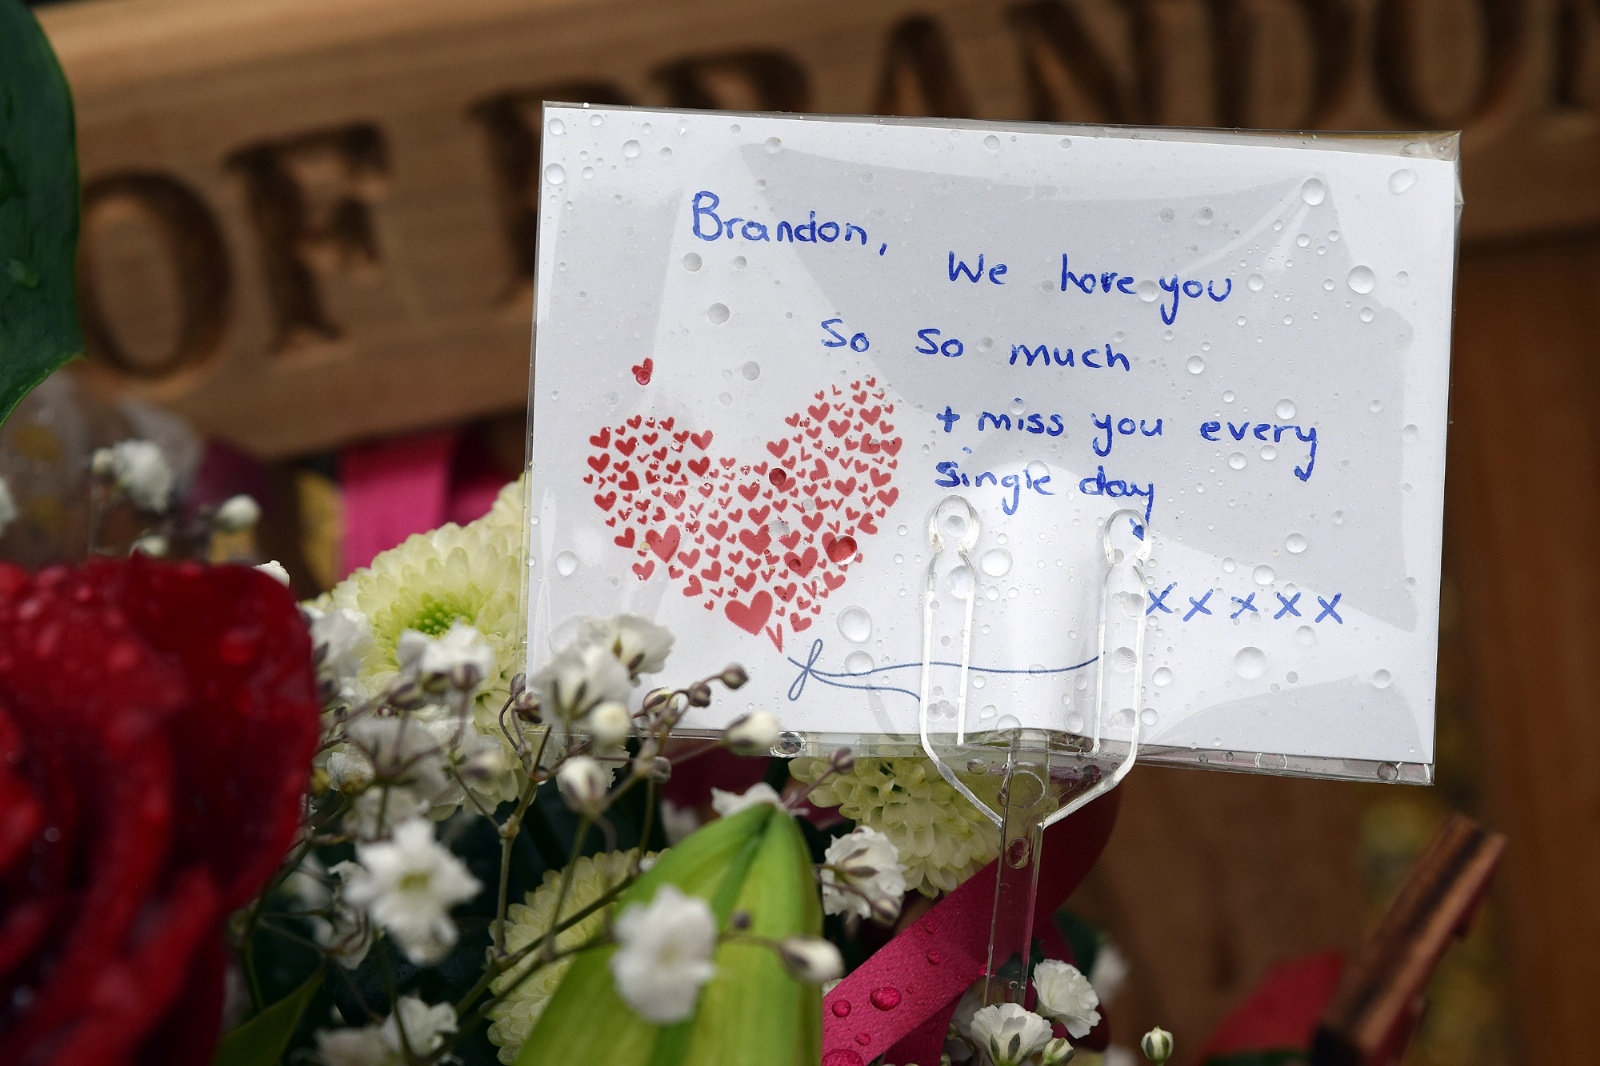 OF BRANDON
Brandon,
We love you
So So much
+ miss you every
single day
xxxxx